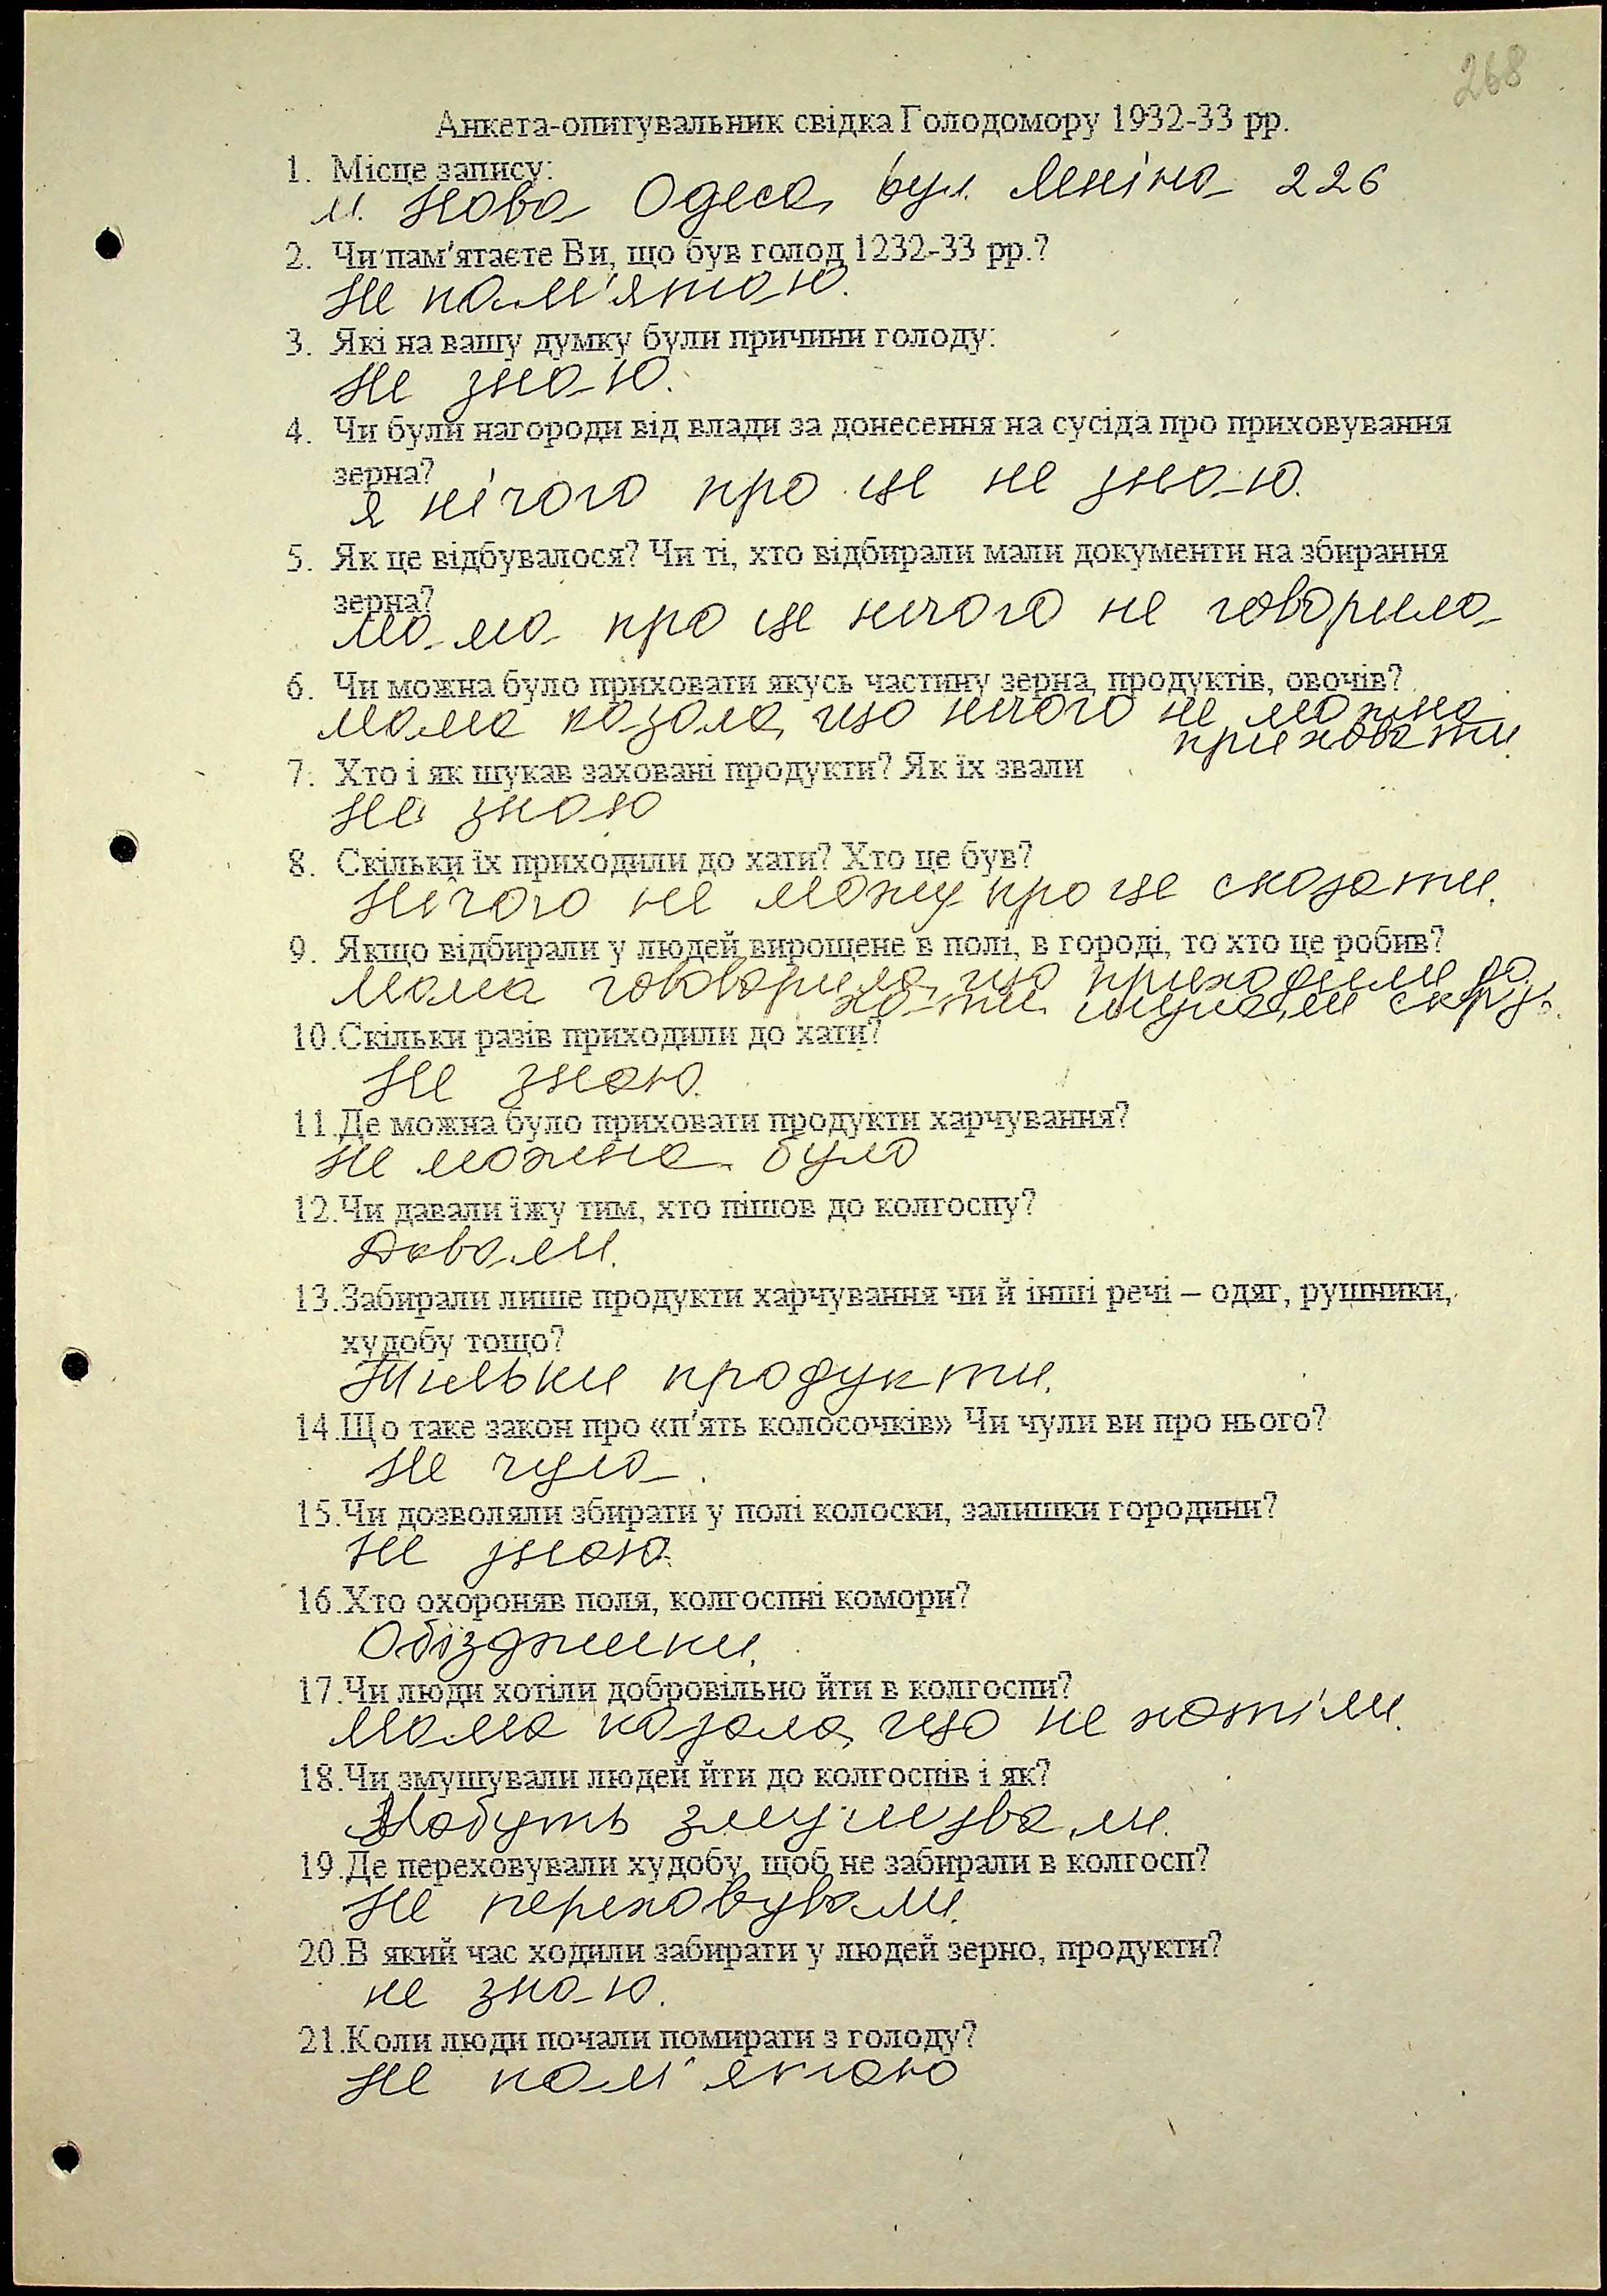 268
Анкета-опитувальник свідка Голодомору 1932-33 рр.
1. Місце запису:
м. Нова Одеса, вул. Леніна 226
2. Чи пам'ятаєте Ви, що був голод 1232-33 рр.?
Не пам'ятаю.
3. Які на вашу думку були причини голоду:
Не знаю.
4. Чи були нагороди від влади за донесення на сусіда про приховування
зерна?
Я нічого про це не знаю.
5. Як це відбувалося? Чи ті, хто відбирали мали документи на збирання
зерна?
Мама про це нічого не говорила
6. Чи можна було приховати якусь частину зерна, продуктів, овочів?
Мама казала, що нічого не можна
приховати.
7. Хто і як шукав заховані продукти? Як їх звали
Не знаю
8. Скільки їх приходили до хати? Хто це був?
Нічого не можу про це сказати.
9. Якщо відбирали у людей вирощене в полі, в городі, то хто це робив?
Мама говорила, що приходили до
хати шукали скрізь.
10.Скільки разів приходили до хати?
Не знаю.
11.Де можна було приховати продукти харчування?
Не можна було
12.Чи давали їжу тим, хто пішов до колгоспу?
Давали.
13.Забирали лише продукти харчування чи й інші речі – одяг, рушники,
худобу тощо?
Тільки продукти.
14.Що таке закон про «п'ять колосочків» Чи чули ви про нього?
Не чула.
15.Чи дозволяли збирати у полі колоски, залишки городини?
Не знаю.
16.Хто охороняв поля, колгоспні комори?
Обїзджики.
17.Чи люди хотіли добровільно йти в колгоспи?
Мама казала, що не хотіли.
18.Чи змушували людей йти до колгоспів і як?
Мабуть змушували.
19.Де переховували худобу, щоб не забирали в колгосп?
Не переховували.
20.В який час ходили забирати у людей зерно, продукти?
не знаю.
21.Коли люди почали помирати з голоду?
Не пам'ятаю